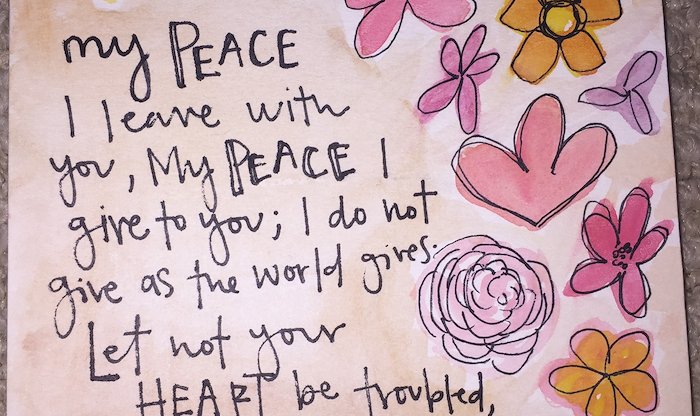 my PEACE
I leave with
you, My PEACE I
give to you; I do not
give as the world gives.
Let not your
HEART be troubled,